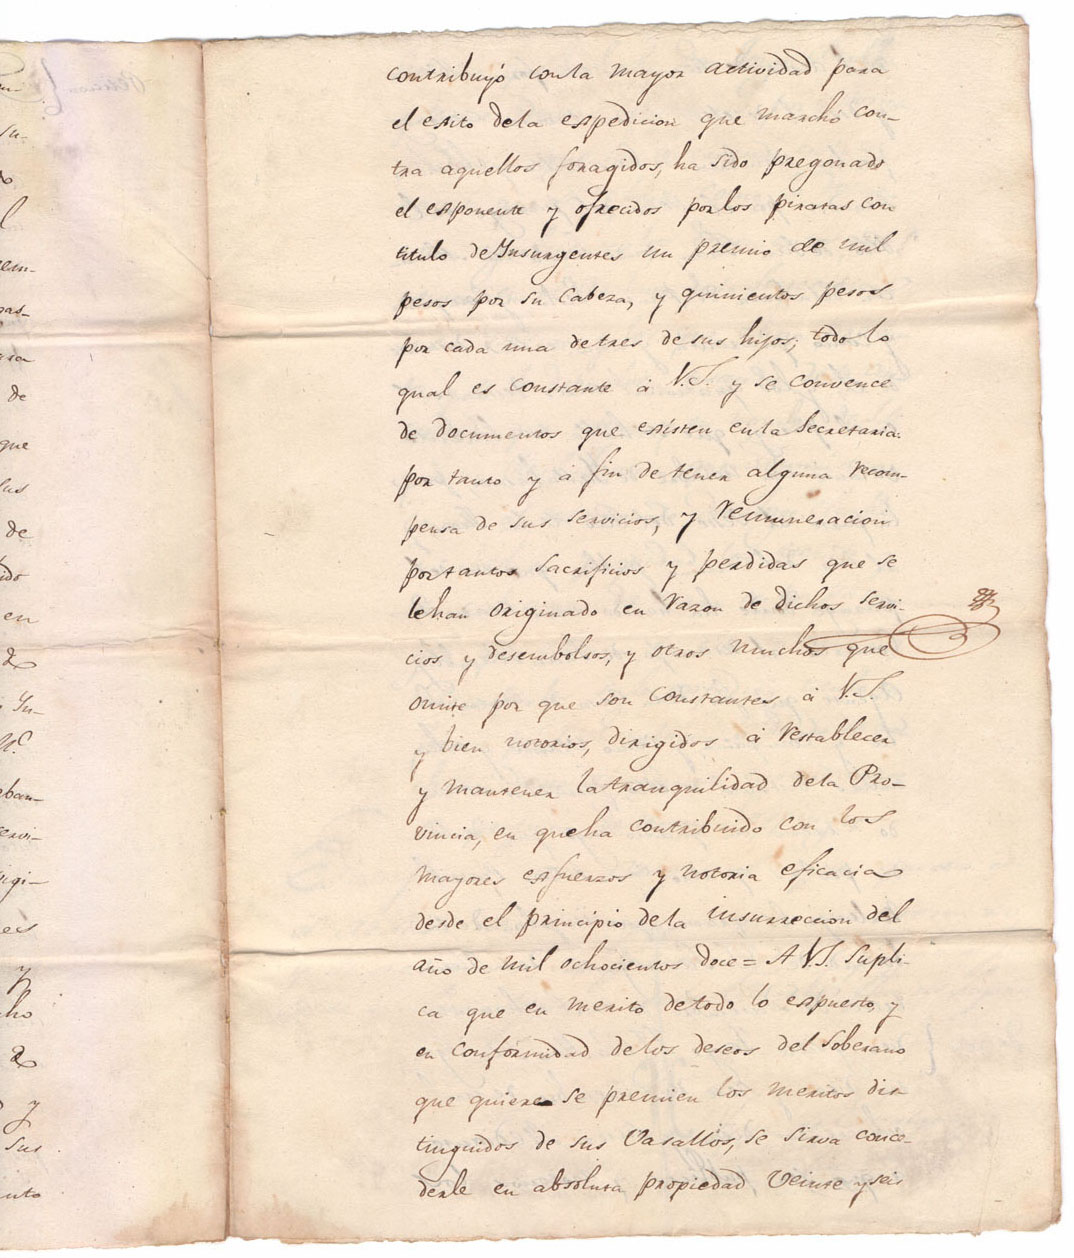 contribuyó conla mayor actividad para
el esito dela espedicion que marchó con-
tra aquellos foragidos, ha sido pregonado
el esponente y ofrecidos porlos piratas con
titulo de Ynsurgentes un premio de mil
pesos por su Cabeza, y quinientos pesos
por cada una detres de sus hijos; todo lo
qual es constante á V.S. y se convence
de documentos que esisten enla Secretaria:
por tanto y á fin detener alguna recom-
pensa de sus servicios, y remuneracion
portantos sacrificios y perdidas que se
lehan originado en razon de dichos servi-
cios y desembolsos, y otros muchos que
omite por que son constantes á V.S.
y bien notorios, dirigidos á restablecer
y mantener latranquilidad dela Pro-
vincia, en queha contribuido con los
mayores esfuerzos y notoria eficacia
desde el principio dela insurreccion del
año de mil ochocientos doce = A V.S. supli-
ca que en merito detodo lo espuesto, y
en conformidad delos deseos del Soberano
que quiere se premien los meritos dis
tinguidos de sus Vasallos, se sirva conce-
derle en absoluta propiedad veinte y seis
su-
l
pas-
de
que
sus
de
en
Yn-
ervi-
y
cho
y
sus